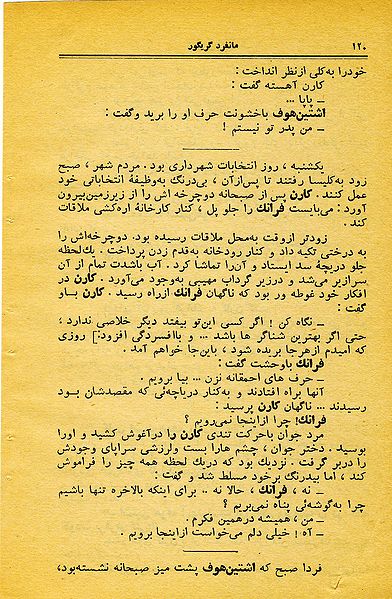 ۱۲۰ مانفرد گریگور
خودرا به‌کلی ازنظر انداخت :
کارن آهسته گفت :
ـ پاپا ...
اشتین‌هوف باخشونت حرف او را برید وگفت :
ـ من پدر تو نیستم !
یکشنبه ، روز انتخابات شهرداری بود . مردم شهر ، صبح
زود به‌کلیسا رفتند تا پس‌ازآن ، بی‌درنگ به‌وظیفهٔ انتخاباتی خود
عمل کنند . کارن پس از صبحانه دوچرخه اش را از زیرزمین‌بیرون
آورد : می‌بایست فرانك را جلو پل ، کنار کارخانهٔ اره‌کشی ملاقات
کند .
زودتر ازوقت به‌محل ملاقات رسیده بود. دوچرخه‌اش را
به درختی تکیه داد و کنار رودخانه به‌قدم زدن پرداخت . یك‌لحظه
جلو دریچهٔ سد ایستاد و آن‌را تماشا کرد . آب باشدت تمام از آن
سرازیر می‌شد و درزیر گرداب مهیبی به‌وجود می‌آورد . کارن در
افکار خود غوطه ور بود که ناگهان فرانك ازراه رسید . کارن باو
گفت :
ـ نگاه کن ! اگر کسی این‌تو بیفتد دیگر خلاصی ندارد ،
حتی اگر بهترین شناگر ها باشد ... و باافسردگی افزود:] روزی
که امیدم ازهرجا بریده شود ، باین‌جا خواهم آمد .
فرانك باوحشت گفت :
ـ حرف های احمقانه نزن ... بیا برویم .
آنها براه افتادند و به‌کنار دریاچه‌ئی که مقصدشان بود
رسیدند ... ناگهان کارن پرسید :
فرانك! چرا ازاینجا نمی‌رویم ؟
مرد جوان باحرکت تندی کارن را درآغوش کشید و اورا
بوسید . دختر جوان ، چشم هارا بست ولرزشی سراپای وجودش
را دربر گرفت . نزدیك بود که دریك لحظه همه چیز را فراموش
کند ، اما بیدرنگ برخود مسلط شد و گفت :
ـ نه ، فرانك ، حالا نه .. برای اینکه بالاخره تنها باشیم
چرا به‌گوشه‌ئی پناه نمی‌بریم ؟
ـ من ، همیشه درهمین فکرم .
ـ آه ! خیلی دلم می‌خواست ازاینجا برویم .
فردا صبح که اشتین‌هوف پشت میز صبحانه نشسته‌بود،